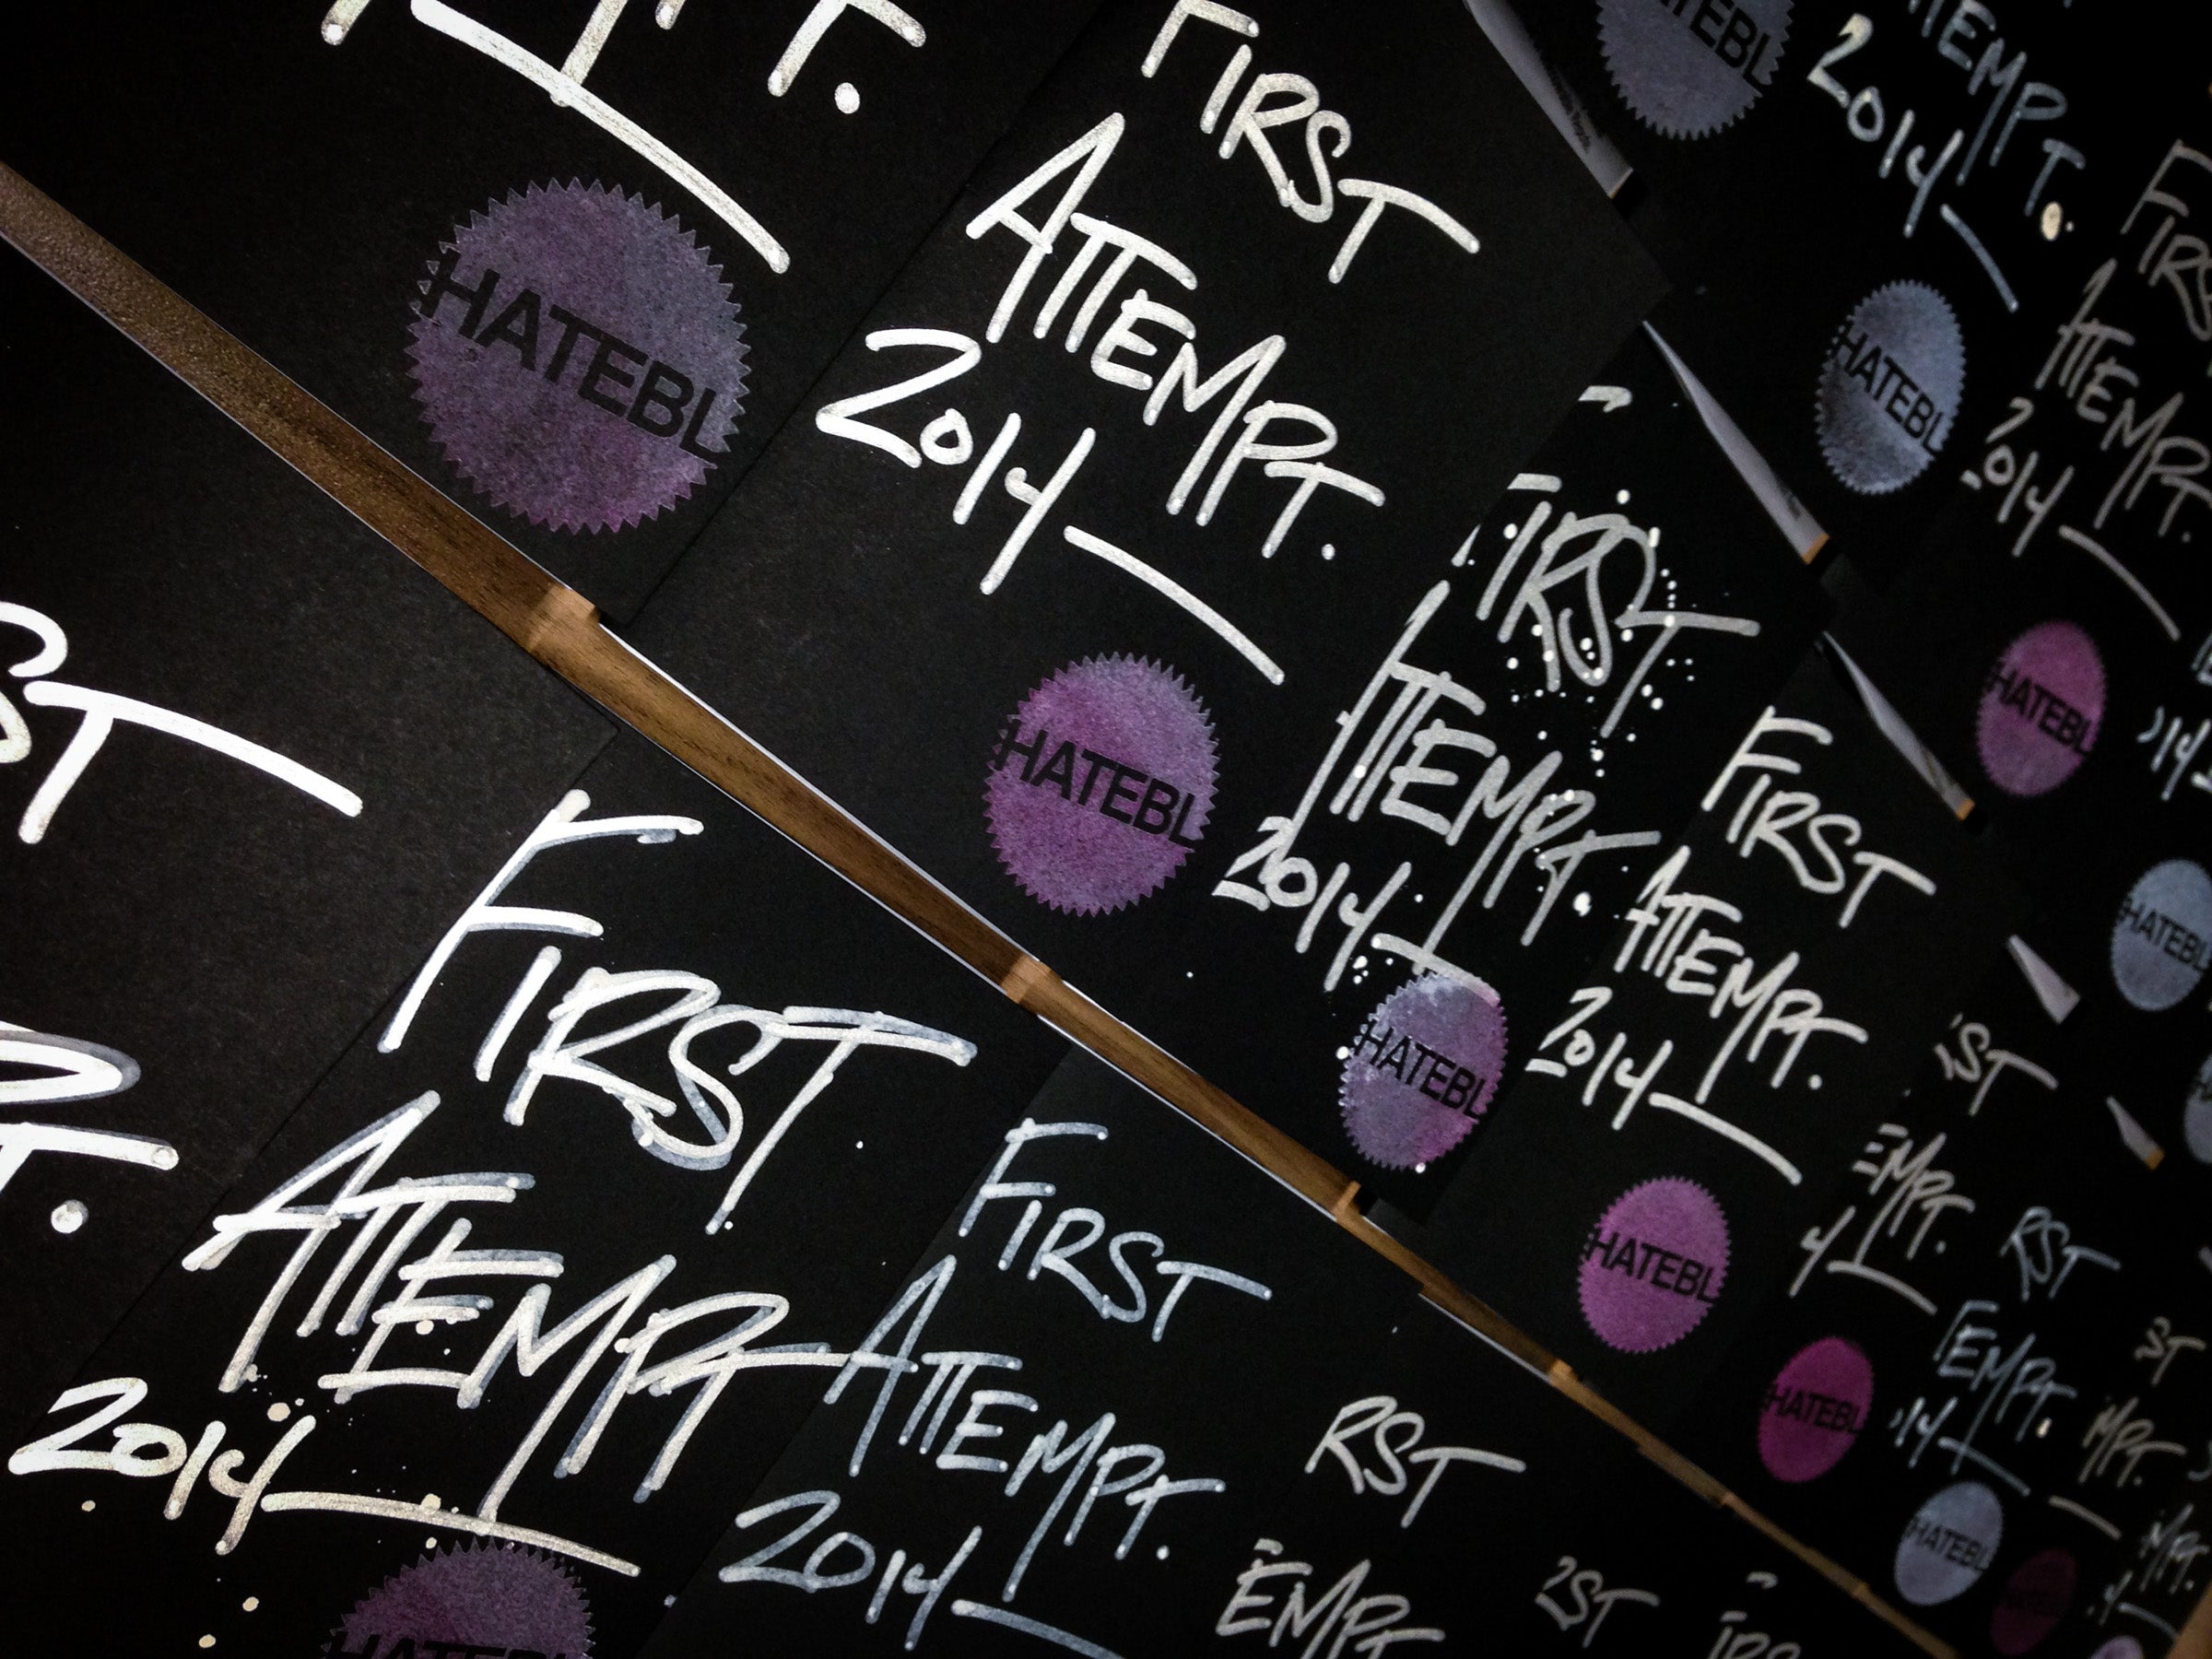 T.
HATEBL
FIRST
ATTEMPT.
2014
HATEBL
HATEBL
ATTEMPT.
2014
HATEBL
FIRST
ATTEMPT.
2014
HATEBL
FIRST
ATTEMPT.
2014
HATEBL
FIRST
ATTEMPT.
2014
HATEBL
ST
T.
FIRST
ATTEMPT
2014
HATEBL
FIRST
ATTEMPT.
2014
RST
EMPT
ST
HATEBL
iST
EMPT.
4
HATEBL
RST
EMPT.
14
HATEBL
ST
MPT.